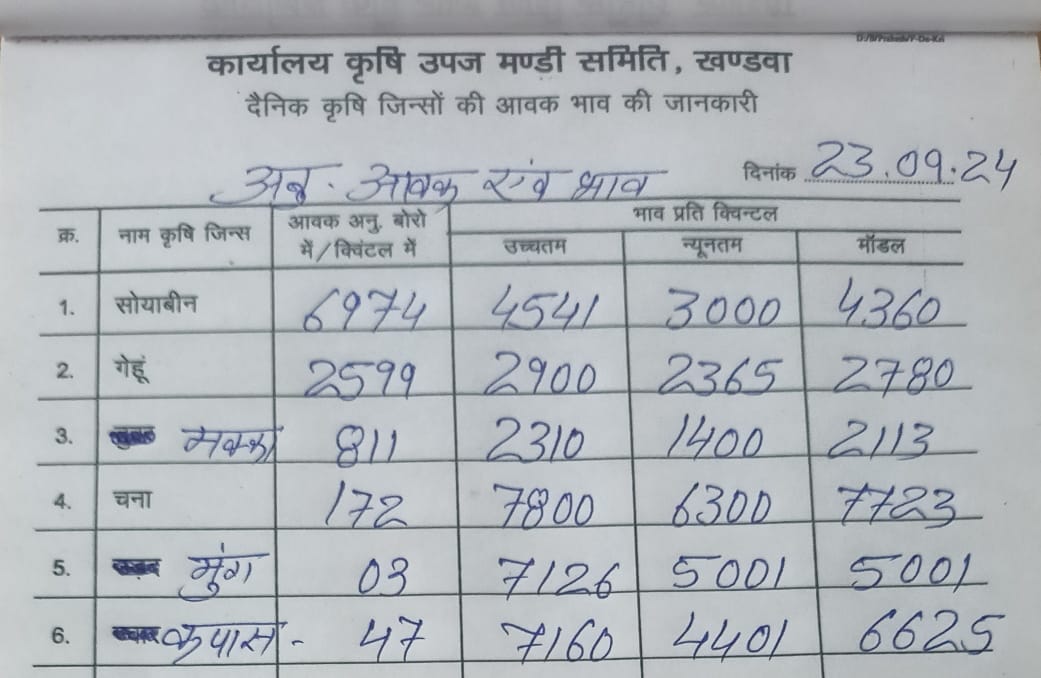 कार्यालय कृषि उपज मण्डी समिति, खण्डवा
दैनिक कृषि जिन्सों की आवक भाव की जानकारी
अनु. आवक एंव भाव दिनांक 23.09.24
क्र. नाम कृषि जिन्स आवक अनु. बोरो में/क्विंटल में भाव प्रति क्विन्टल
उच्चतम न्यूनतम मॉडल
1. सोयाबीन 6974 4541 3000 4360
2. गेहूं 2599 2900 2365 2780
3. मक्का 811 2310 1400 2113
4. चना 172 7800 6300 7723
5. मुंग 03 7126 5001 5001
6. कपास - 47 7160 4401 6625